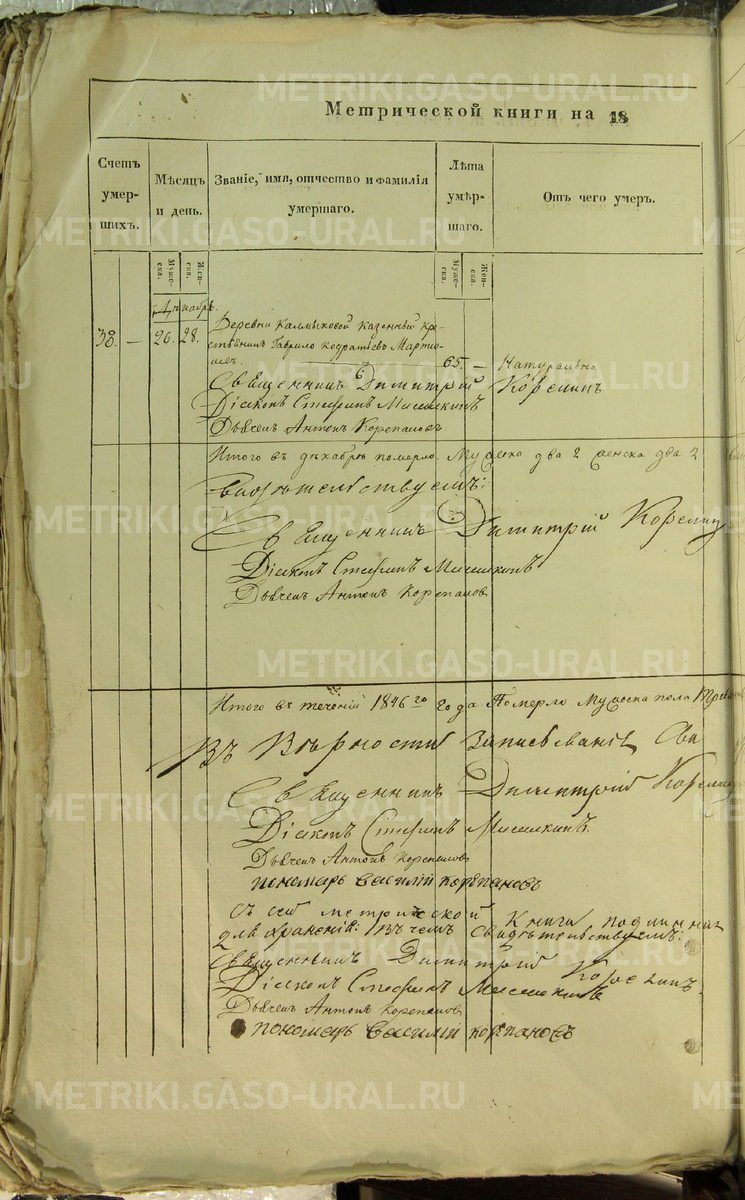 Метрической книги на 18
Счетъ умер-шихъ.
Мѣсяцъ и день.
Званіе, имя, отчество и фамилія умершаго.
Лѣта умѣр-шаго.
Отъ чего умеръ.
Муже-ска.
Жен-ска.
Муже-ска.
Жен-ска.
Декабрь.
38. — 26. 28. Деревни Калмыковой казенный кре-
стьянинъ Гаврило Кодратьевъ Мартю-
шевъ 65. — Натурально.
Священникъ Димитрій Корелинъ
Діаконъ Стефанъ Мышкинъ
Дьячекъ Антонъ Корепановъ
Итого въ декабрѣ померло. Мужска два 2 женска два 2
Свидѣтельствуемъ:
Священникъ Димитрій Корелин
Діаконъ Стефанъ Мышкинъ
Дьячекъ Антонъ Корепановъ
Итого въ теченіи 1846го года Померло Мужска пола
Въ Вѣрности Записыванія
Священникъ Димитрій Корелин
Діаконъ Стефанъ Мышкинъ.
Дьячекъ Антонъ Корепановъ
пономарь Василій Корепановъ
Съ сей метрической Книги подлинная
для храненія: Въ чемъ Свидѣтельствуемъ:
Священникъ Димитрій Корелинъ.
Діаконъ Стефанъ Мышкинъ
Дьячекъ Антонъ Корепановъ
пономарь Василій Корепановъ
METRIKI.GASO-URAL.RU